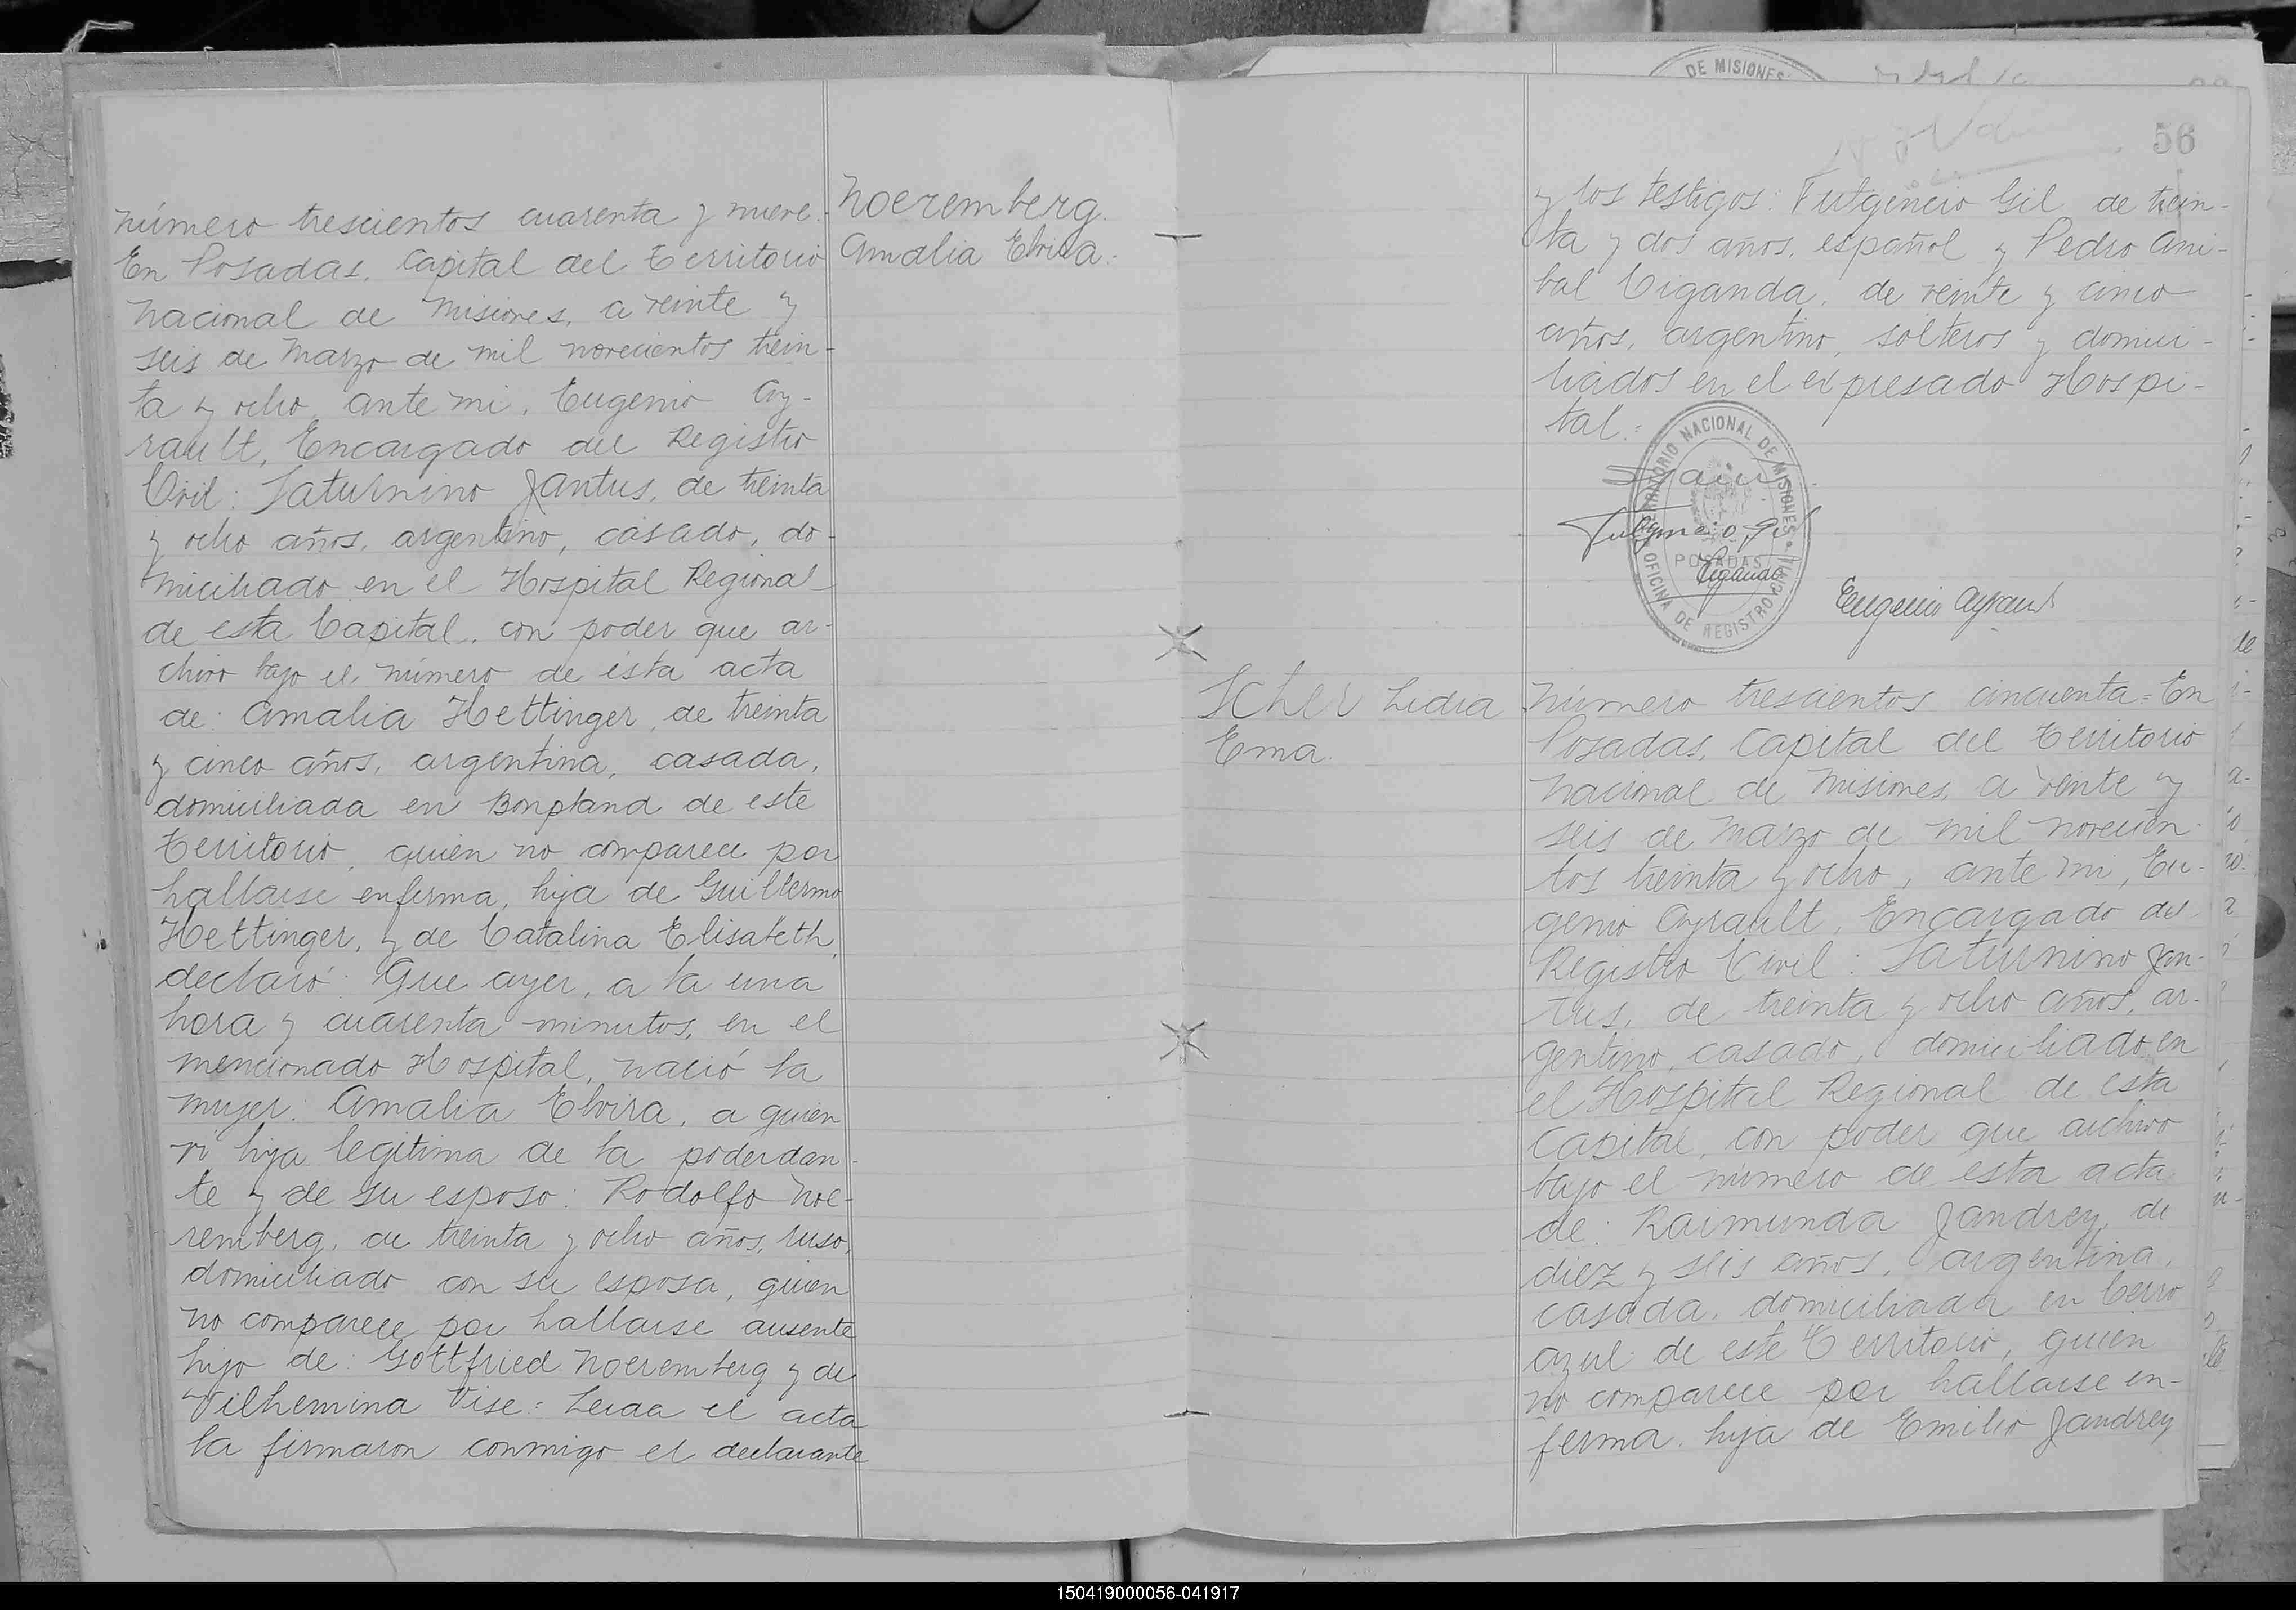 número trescientos cuarenta y nueve.-
En Posadas, Capital del Territorio
Nacional de Misiones, a veinte y
seis de Marzo de mil novecientos trein-
ta y ocho, ante mi, Eugenio Ay-
rault, Encargado del Registro
Civil: Saturnino Jantus, de treinta
y ocho años, argentino, casado, do-
miciliado en el Hospital Regional
de esta Capital, con poder que ar-
chivo bajo el número de ésta acta
de: Amalia Hettinger, de treinta
y cinco años, argentina, casada,
domiciliada en Bonpland de este
Territorio, quien no comparece por
hallarse enferma, hija de Guillermo
Hettinger, y de Catalina Elisabeth,
declaró: Que ayer, a la una
hora y cuarenta minutos, en el
mencionado Hospital, nació la
mujer: Amalia Elvira, a quien
vi hija legitima de la poderdan-
te y de su esposo: Rodolfo Noe-
remberg, de treinta y ocho años, ruso,
domiciliado con su esposa, quien
no comparece por hallarse ausente
hijo de: Gottfried Noeremberg y de
Vilhemina Vise.= Leida el acta
la firmaron conmigo el declarante
Noeremberg.
Amalia Elvira.-
DE MISIONES
56
y los testigos: Fulgencio Gil de trein-
ta y dos años, español y Pedro Ani-
bal Ciganda, de veinte y cinco
años, argentino, solteros y domici-
liados en el expresado Hospi-
tal.-
TERRITORIO NACIONAL DE MISIONES
POSADAS
OFICINA DE REGISTRO CIVIL
Fulgencio Gil
Ciganda
Eugenio Ayrault
Scher Lidia
Ema.
Número trescientos cincuenta= En
Posadas, Capital del Territorio
Nacional de Misiones, a veinte y
seis de Marzo de mil novecien-
tos treinta y ocho, ante mi, Eu-
genio Ayrault, Encargado del
Registro Civil: Saturnino Jan-
tus, de treinta y ocho años, ar-
gentino, casado, domiciliado en
el Hospital Regional de esta
Capital, con poder que archivo
bajo el número de esta acta
de: Raimunda Jandrey, de
diez y seis años, argentina,
casada, domiciliada en Cerro
azul de este Territorio, quien
no comparece por hallarse en-
ferma, hija de Emilio Jandrey
150419000056-041917